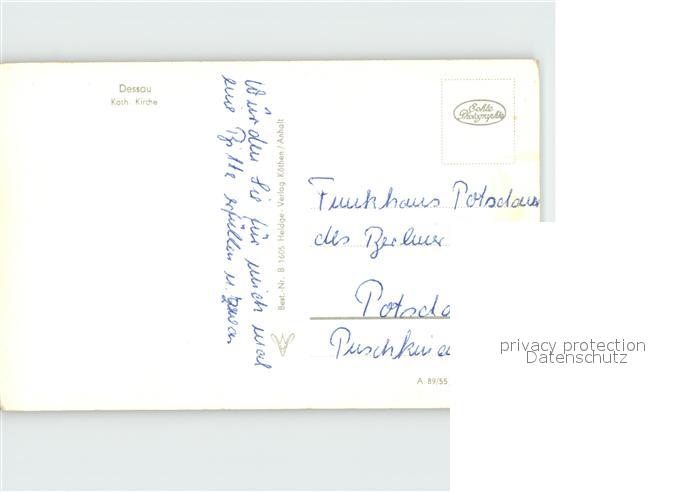 Dessau
Kath. Kirche
Würden Sie für mich mal
eine Bitte erfüllen u. zwar
Best.-Nr. B 1605 Heldge-Verlag Köthen/Anhalt
Echte
Photographie
Funkhaus Potsdam
des Berliner
Potsda
Puschkina
A 89/55
privacy protection
Datenschutz